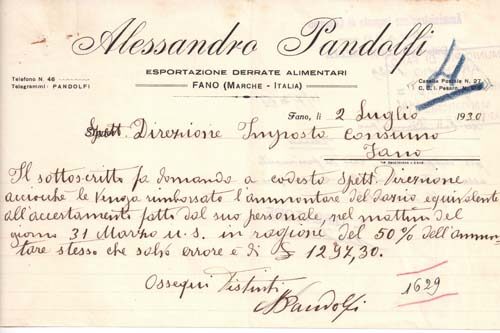 Alessandro Pandolfi
ESPORTAZIONE DERRATE ALIMENTARI
FANO (MARCHE - ITALIA)
Telefono N. 46
Telegrammi: PANDOLFI
Casella Postale N. 27
C. C. I. Pesaro, N.
Fano, li 2 Luglio 1930
Spett. Direzione Imposto Consumo
Fano
Il sottoscritto fa domanda a codesto Spett. Direzione
acciocché le venga rimborsato l'ammontare del dazio equivalente
all'accertamento fatto dal suo personale, nel mattino del
giorno 31 Marzo u.s. in ragione del 50% dell'ammon
tare stesso che salvo errore è di £ 1297,30.
Ossequi Distinti
APandolfi
1629